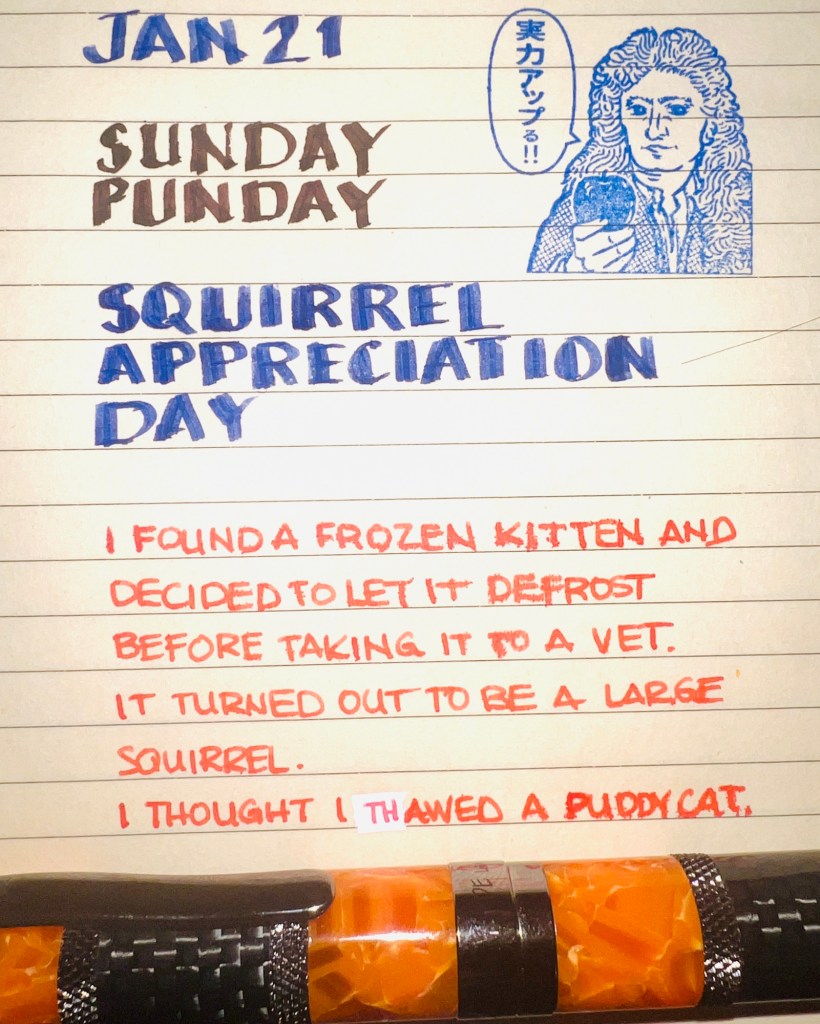 JAN 21
実力アップる!!
SUNDAY
PUNDAY
SQUIRREL
APPRECIATION
DAY
I FOUND A FROZEN KITTEN AND
DECIDED TO LET IT DEFROST
BEFORE TAKING IT TO A VET.
IT TURNED OUT TO BE A LARGE
SQUIRREL.
I THOUGHT I THAWED A PUDDYCAT.